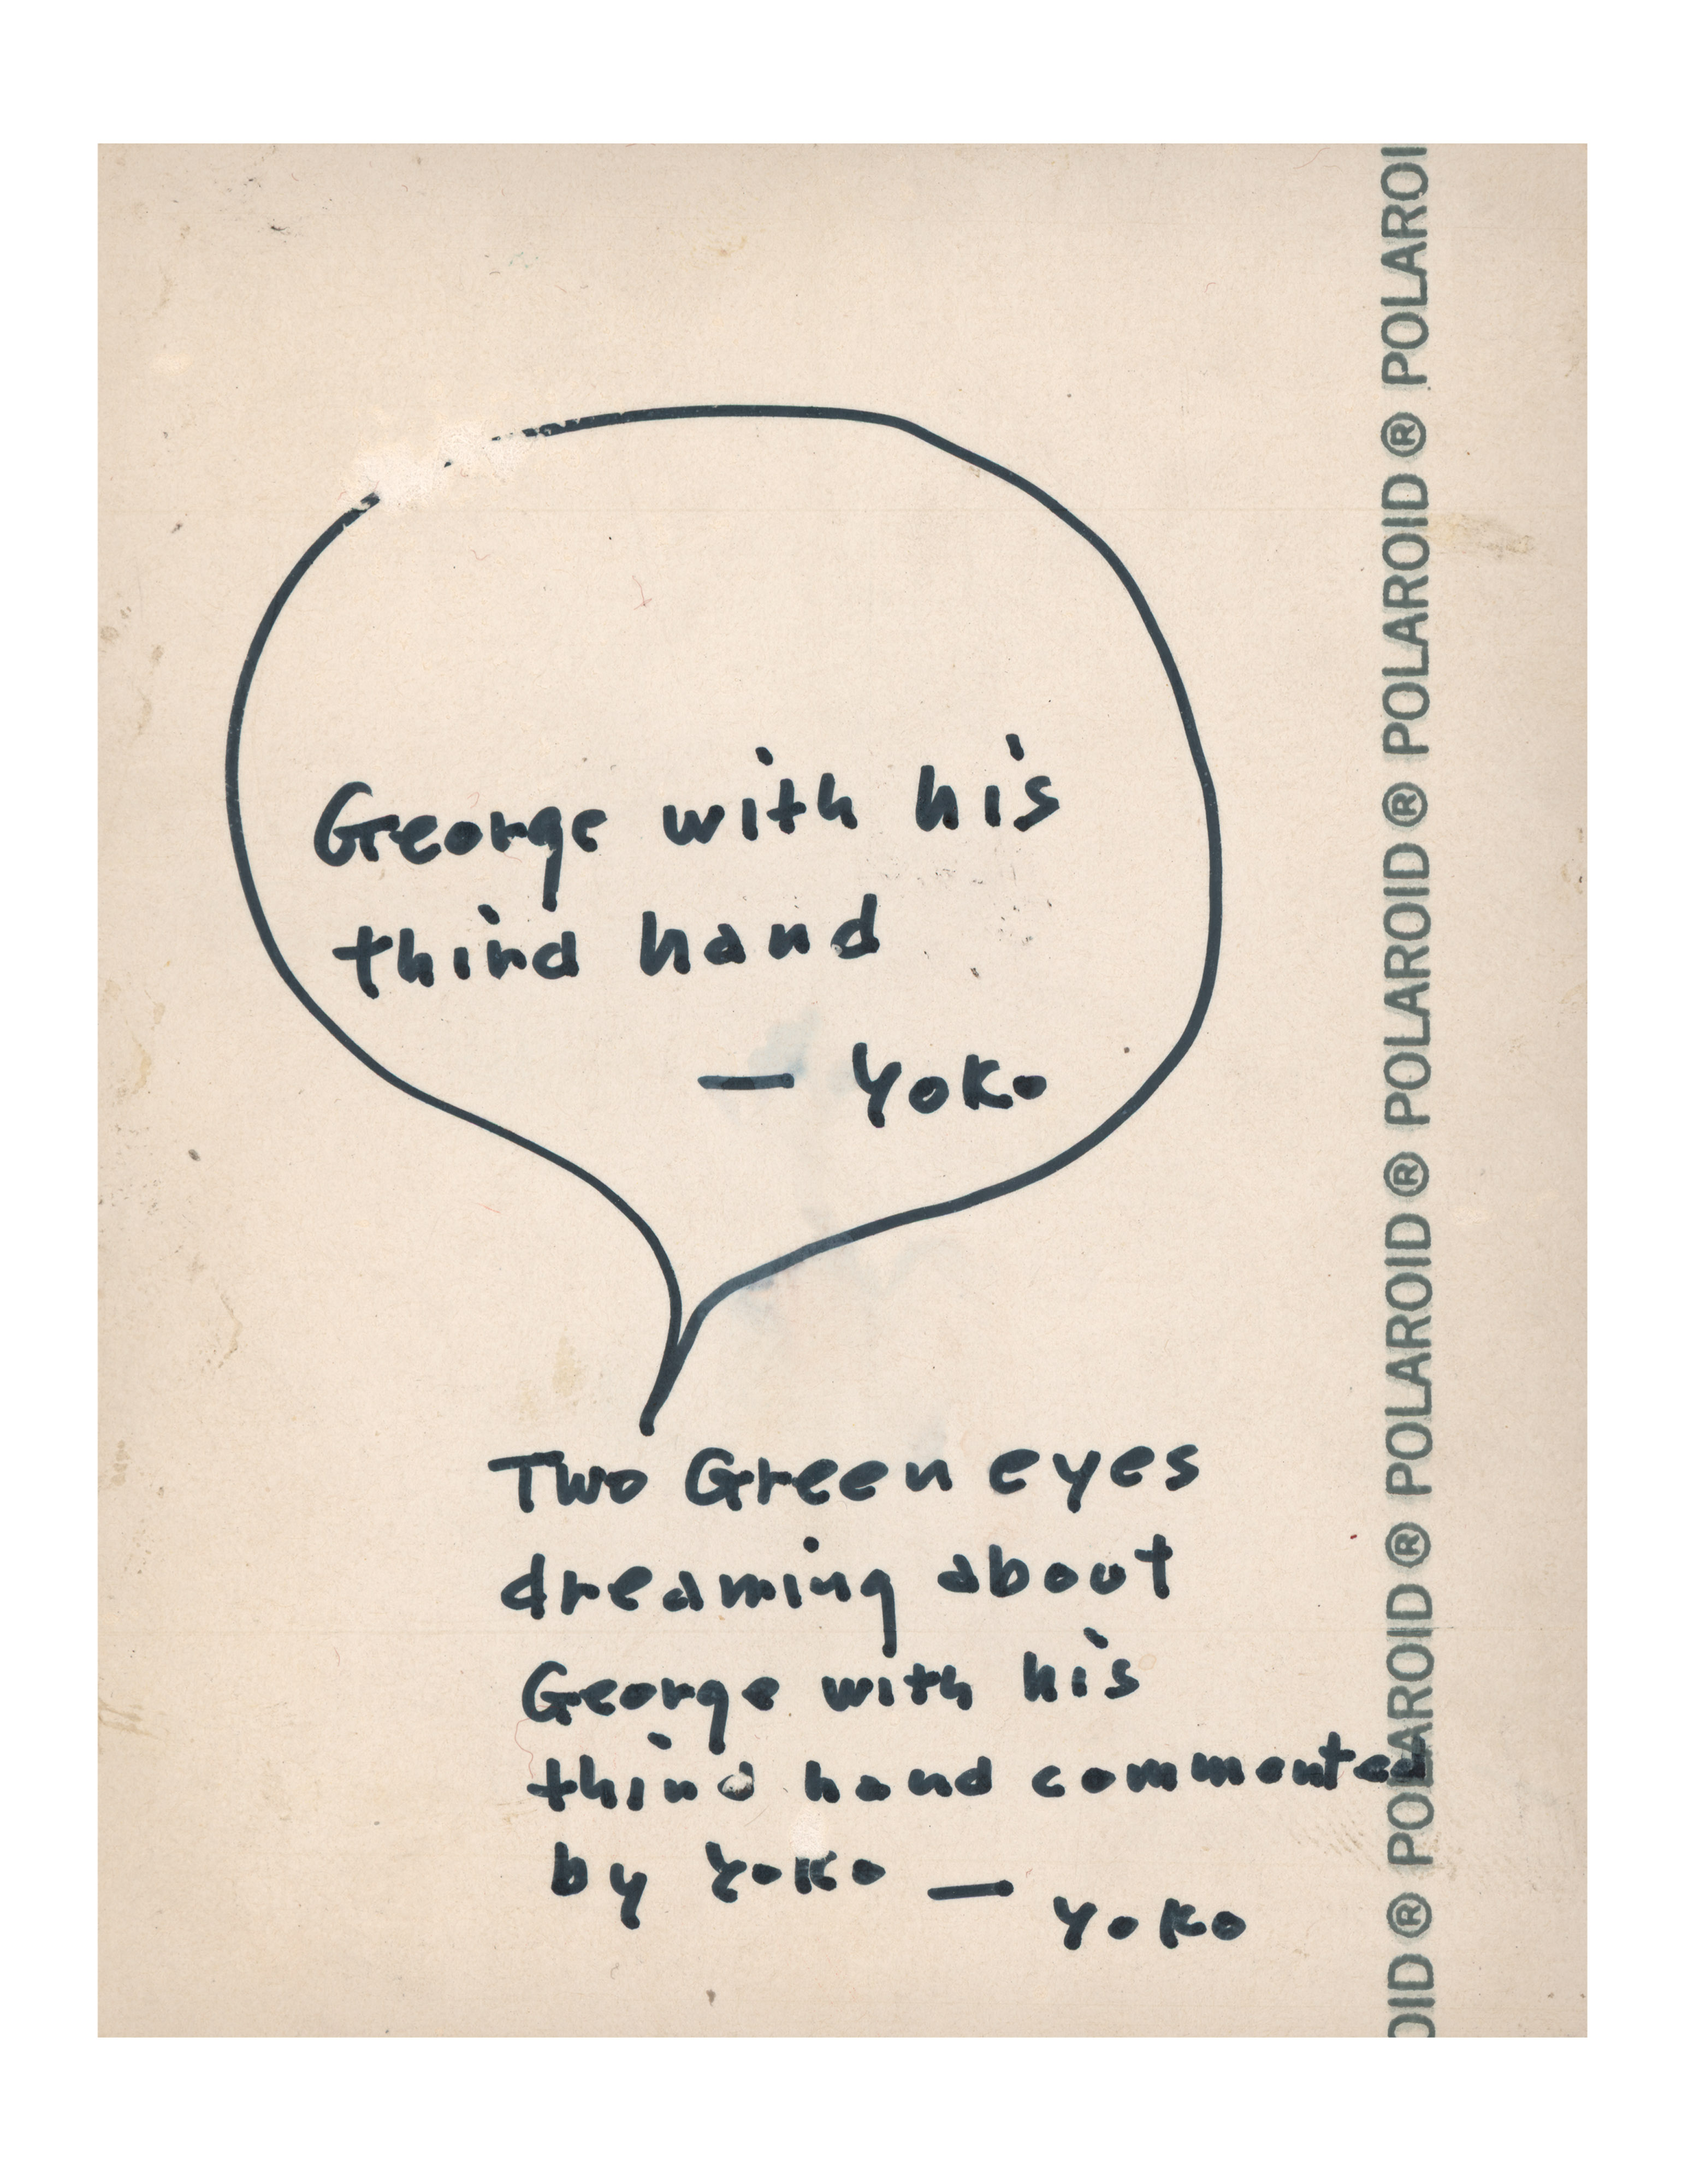 George with his
third hand
— Yoko
Two Green eyes
dreaming about
George with his
third hand commented
by Yoko — Yoko
OID ® POLAROID ® POLAROID ® POLAROID ® POLAROID ® POLAROI